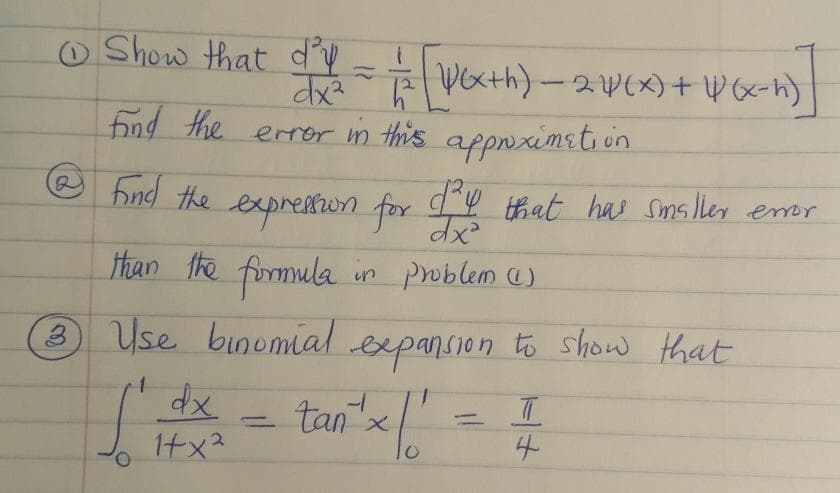 ① Show that d²ψ/dx² ≈ 1/h² [ψ(x+h) − 2ψ(x) + ψ(x-h)]
find the error in this approximation
② find the expression for d²ψ/dx² that has smaller error
than the formula in problem (1)
③ Use binomial expansion to show that
∫₀¹ dx/(1+x²) = tan⁻¹x |₀¹ = π/4